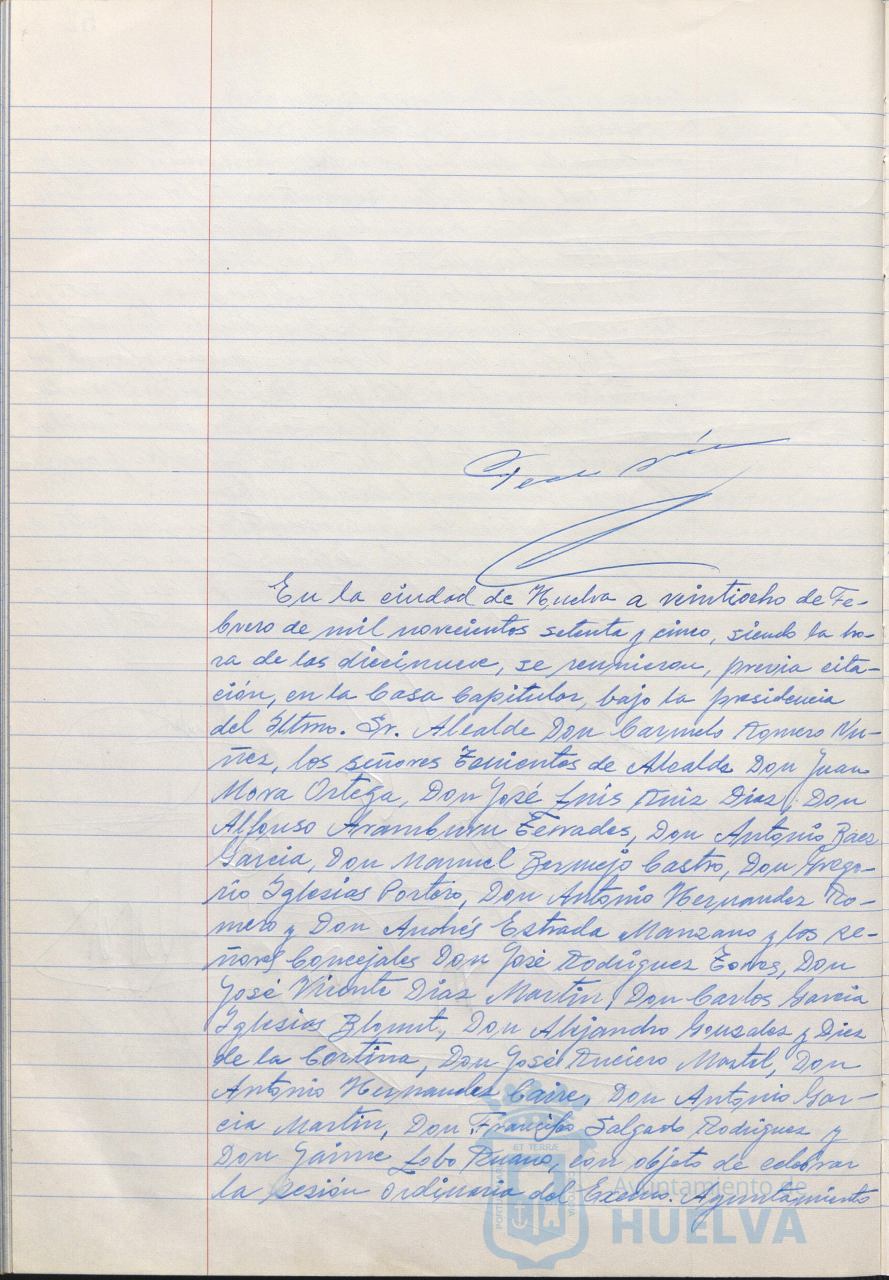 En la ciudad de Huelva a veintiocho de Fe-
brero de mil novecientos setenta y cinco, siendo la ho-
ra de las diecinueve, se reunieron, previa cita-
ción, en la Casa Capitular, bajo la presidencia
del Iltmo. Sr. Alcalde Don Carmelo Romero Nu-
ñez, los señores Tenientes de Alcalde Don Juan
Mora Ortega, Don José Luis Ruiz Díaz, Don
Alfonso Aramburu Terrades, Don Antonio Baez
Garcia, Don Manuel Bermejo Castro, Don Grego-
rio Iglesias Portero, Don Antonio Hernandez Ro-
mero y Don Andrés Estrada Manzano y los se-
ñores Concejales Don José Rodriguez Don
José Vicente Díaz Martin, Don Carlos Garcia
Iglesias Don Alejandro Gonzalez y Diez
de la Cortina, Don José Martel, Don
Antonio Hernandez Caire, Don Antonio Gar-
cia Martin, Don Francisco Salgado Rodriguez y
Don Jaime Lobo Ruano, con objeto de celebrar
la sesión ordinaria del Excmo. Ayuntamiento
ET TERRÆ
Ayuntamiento de
HUELVA